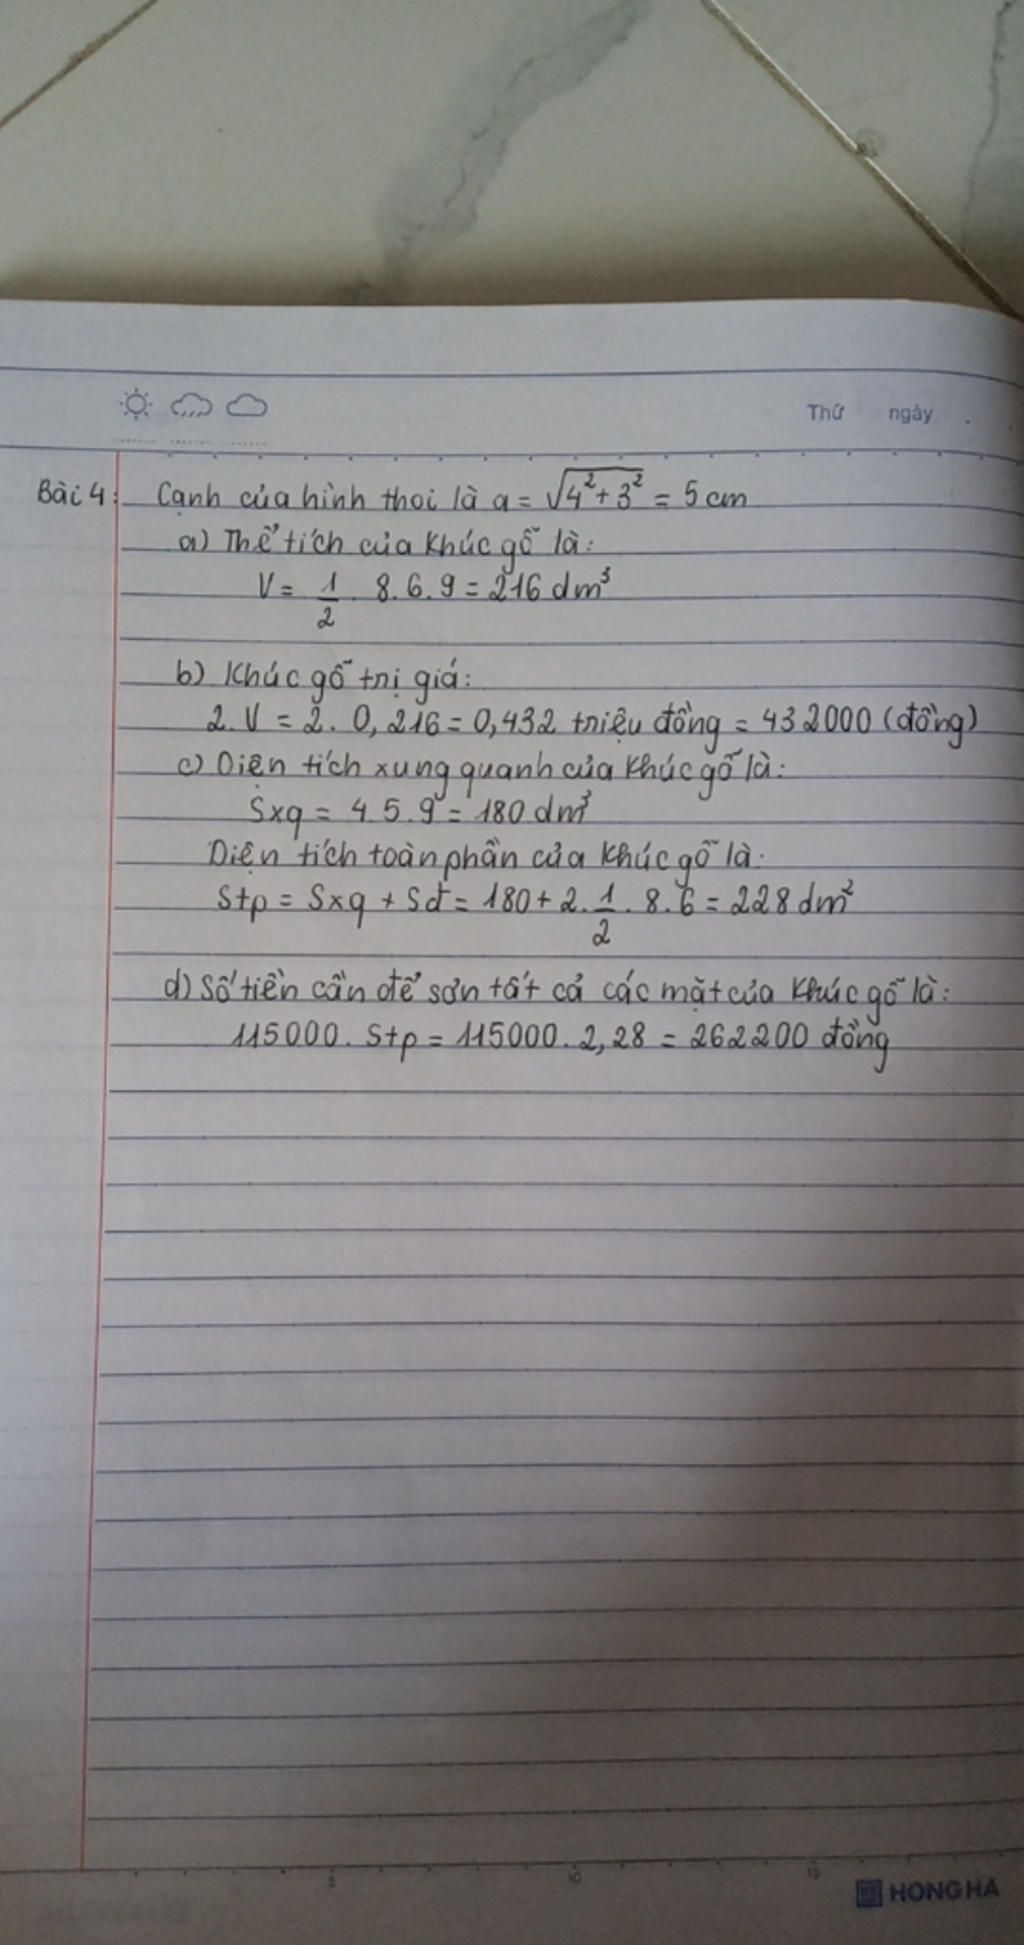 Thứ ngày
Bài 4: Cạnh của hình thoi là a = √4²+3² = 5 cm
a) Thể tích của khúc gỗ là:
V = 1/2 . 8.6.9 = 216 dm³
b) Khúc gỗ trị giá:
2.V = 2. 0,216 = 0,432 triệu đồng = 432000 (đồng)
c) Diện tích xung quanh của khúc gỗ là:
Sxq = 4.5.9 = 180 dm²
Diện tích toàn phần của khúc gỗ là:
Stp = Sxq + Sđ = 180 + 2. 1/2 . 8.6 = 228 dm²
d) Số tiền cần để sơn tất cả các mặt của khúc gỗ là:
115000. Stp = 115000. 2,28 = 262200 đồng
5 10 15
HONG HA